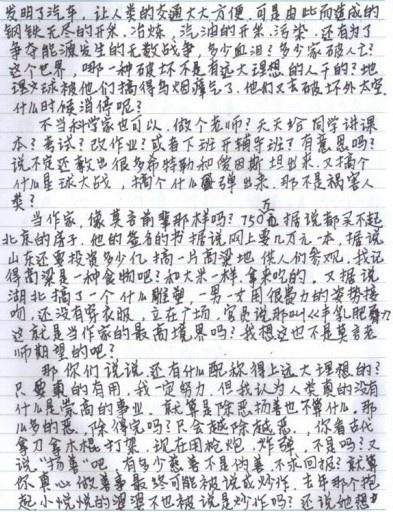 发明了汽车，让人类的交通大大方便，可是由此而造成的
钢铁无尽的开采、冶炼，汽油的开采、污染，还有为了
争夺能源发生的无数战争，多少血泪？多少家破人亡？
这个世界，哪一种破坏不是有远大理想的人干的？地
球又球被他们搞得乌烟瘴气了，他们又去破坏外太空，
什么时候消停呢？
不当科学家也可以，做个老师？天天给同学讲课
本？考试？改作业？或者下班开辅导班？有意思吗？
说不定还教出很多希特勒和爱因斯坦出来，又搞个
什么星球大战，搞个什么弹出来，那不是祸害人
类？
当作家，像莫言前辈那样吗？750万，据说都买不起
北京的房子，他的签名的书据说网上要几万元一本，据说
山东还要投资多少亿，搞一片高粱地供人们参观，我记
得高粱是一种食物吧？和大米一样，拿来吃的，又据说
湖北搞了一个什么雕塑，一男一女用很费力的姿势接
吻，还没有穿衣服，立在广场，官员说那叫《丰乳肥臀》
这就是当作家的最高境界吗？我想这也不是莫言老
师期望的吧？
那你们说说，还有什么配称得上远大理想的？
只要真的有用，我一定努力，但我认为人类真的没有
什么是崇高的事业，就算是除恶扬善也不算什么，那
么多的恶，除得完吗？只会越除越恶，你看古代
拿刀拿木棍打架，现在用枪炮、炸弹，不是吗？又
说“扬善”吧，有多少慈善不是伪善，不求回报？就算
你真心做善事最终可能被说成炒作，去年那个抱
起小悦悦的婆婆不也被说是炒作吗？还说她想